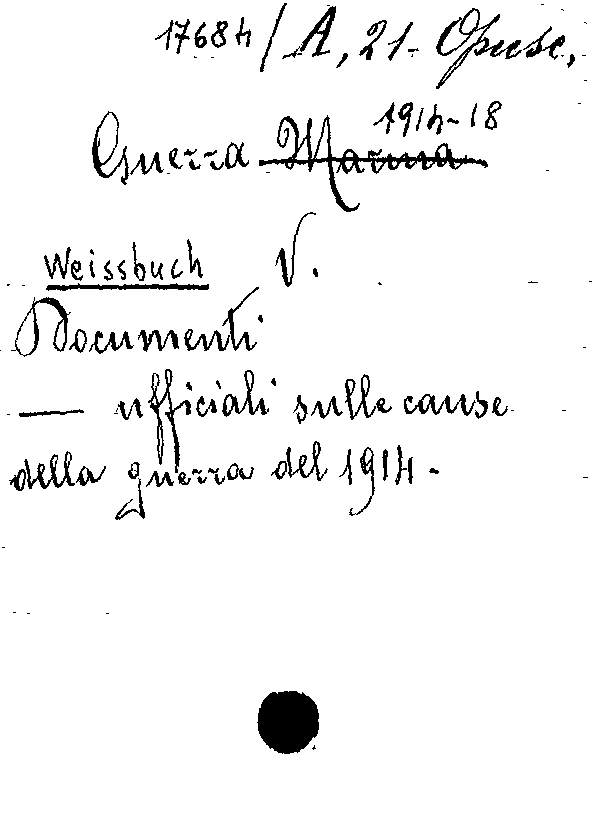 17684 / A, 21. Opusc.
1914-18
Guerra Marina
Weissbuch V.
Documenti
— ufficiali sulle cause
della guerra del 1914.